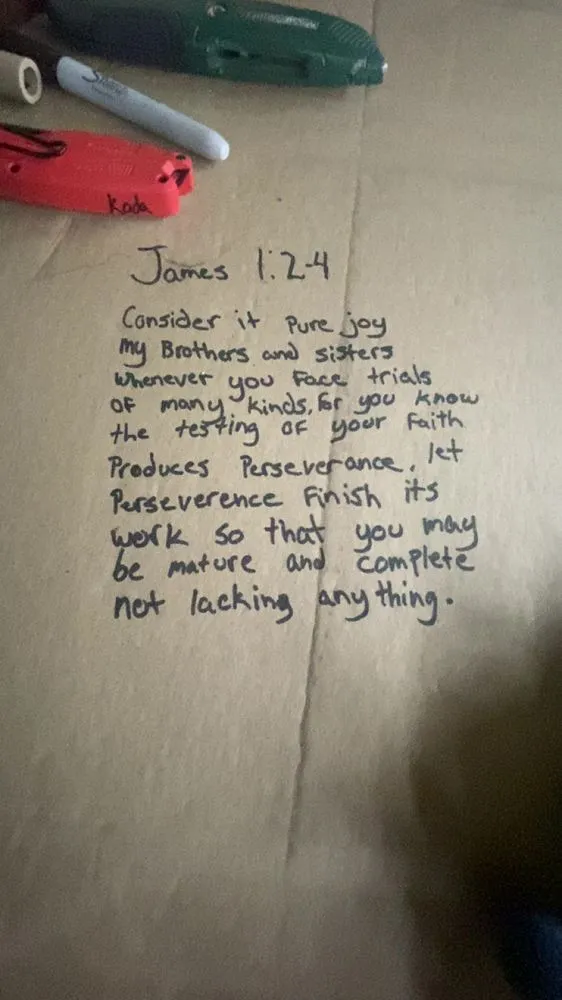 Sharpie
Koda
James 1:2-4
Consider it pure joy
my Brothers and sisters
whenever you face trials
of many kinds, for you know
the testing of your faith
Produces Perseverance. let
Perseverence finish its
work so that you may
be mature and complete
not lacking anything.